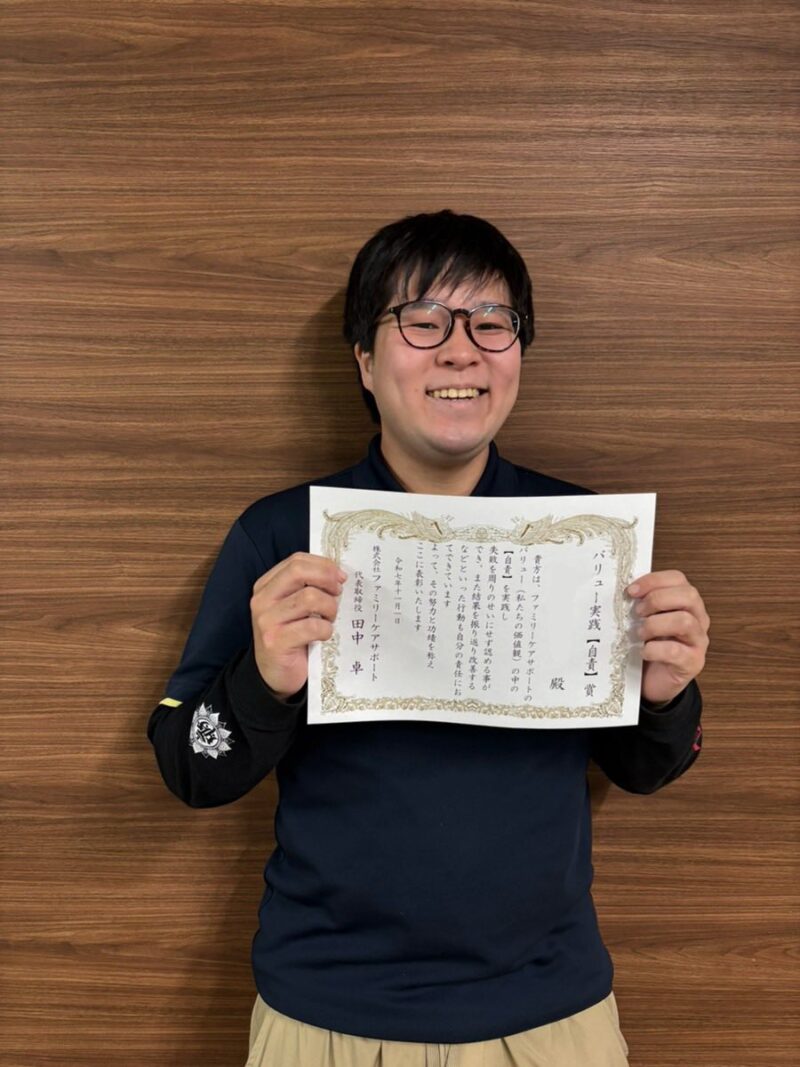 バリュー実践【自責】賞
殿
貴方は、ファミリーケアサポートの
バリュー（私たちの価値観）の中の
【自責】を実践し
失敗を周りのせいにせず認める事が
でき、また結果を振り返り改善する
などといった行動も自分の責任にお
てできています
よって、その努力と功績を称え
ここに表彰いたします
令和七年十一月一日
株式会社ファミリーケアサポート
代表取締役 田中 卓